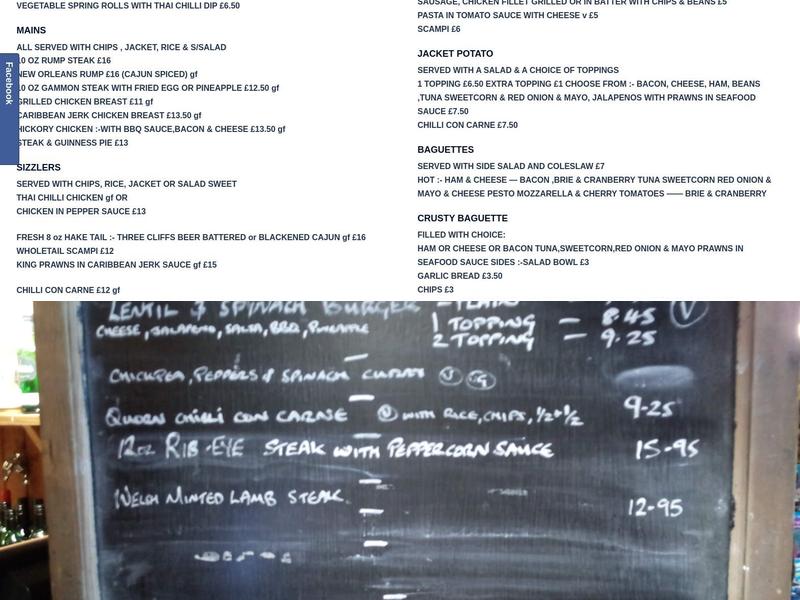 VEGETABLE SPRING ROLLS WITH THAI CHILLI DIP £6.50
MAINS
ALL SERVED WITH CHIPS , JACKET, RICE & S/SALAD
0 OZ RUMP STEAK £16
NEW ORLEANS RUMP £16 (CAJUN SPICED) gf
0 OZ GAMMON STEAK WITH FRIED EGG OR PINEAPPLE £12.50 gf
GRILLED CHICKEN BREAST £11 gf
CARIBBEAN JERK CHICKEN BREAST £13.50 gf
HICKORY CHICKEN :-WITH BBQ SAUCE,BACON & CHEESE £13.50 gf
STEAK & GUINNESS PIE £13
SIZZLERS
SERVED WITH CHIPS, RICE, JACKET OR SALAD SWEET
THAI CHILLI CHICKEN gf OR
CHICKEN IN PEPPER SAUCE £13
FRESH 8 oz HAKE TAIL :- THREE CLIFFS BEER BATTERED or BLACKENED CAJUN gf £16
WHOLETAIL SCAMPI £12
KING PRAWNS IN CARIBBEAN JERK SAUCE gf £15
CHILLI CON CARNE £12 gf
Facebook
SAUSAGE, CHICKEN FILLET GRILLED OR IN BATTER WITH CHIPS & BEANS £5
PASTA IN TOMATO SAUCE WITH CHEESE v £5
SCAMPI £6
JACKET POTATO
SERVED WITH A SALAD & A CHOICE OF TOPPINGS
1 TOPPING £6.50 EXTRA TOPPING £1 CHOOSE FROM :- BACON, CHEESE, HAM, BEANS
,TUNA SWEETCORN & RED ONION & MAYO, JALAPENOS WITH PRAWNS IN SEAFOOD
SAUCE £7.50
CHILLI CON CARNE £7.50
BAGUETTES
SERVED WITH SIDE SALAD AND COLESLAW £7
HOT :- HAM & CHEESE — BACON ,BRIE & CRANBERRY TUNA SWEETCORN RED ONION &
MAYO & CHEESE PESTO MOZZARELLA & CHERRY TOMATOES —— BRIE & CRANBERRY
CRUSTY BAGUETTE
FILLED WITH CHOICE:
HAM OR CHEESE OR BACON TUNA,SWEETCORN,RED ONION & MAYO PRAWNS IN
SEAFOOD SAUCE SIDES :-SALAD BOWL £3
GARLIC BREAD £3.50
CHIPS £3
LENTIL & SPINACH BURGER - PLAIN
CHEESE, JALAPENO, SALSA, BBQ, PINEAPPLE 1 TOPPING — 8.45 V
2 TOPPING — 9.25
CHICKPEA, PEPPERS & SPINACH CURRY V
QUORN CHILLI CON CARNE V WITH RICE, CHIPS, 1/2+1/2 9-25
12oz RIB-EYE STEAK WITH PEPPERCORN SAUCE 15-95
WELSH MINTED LAMB STEAK. 12-95